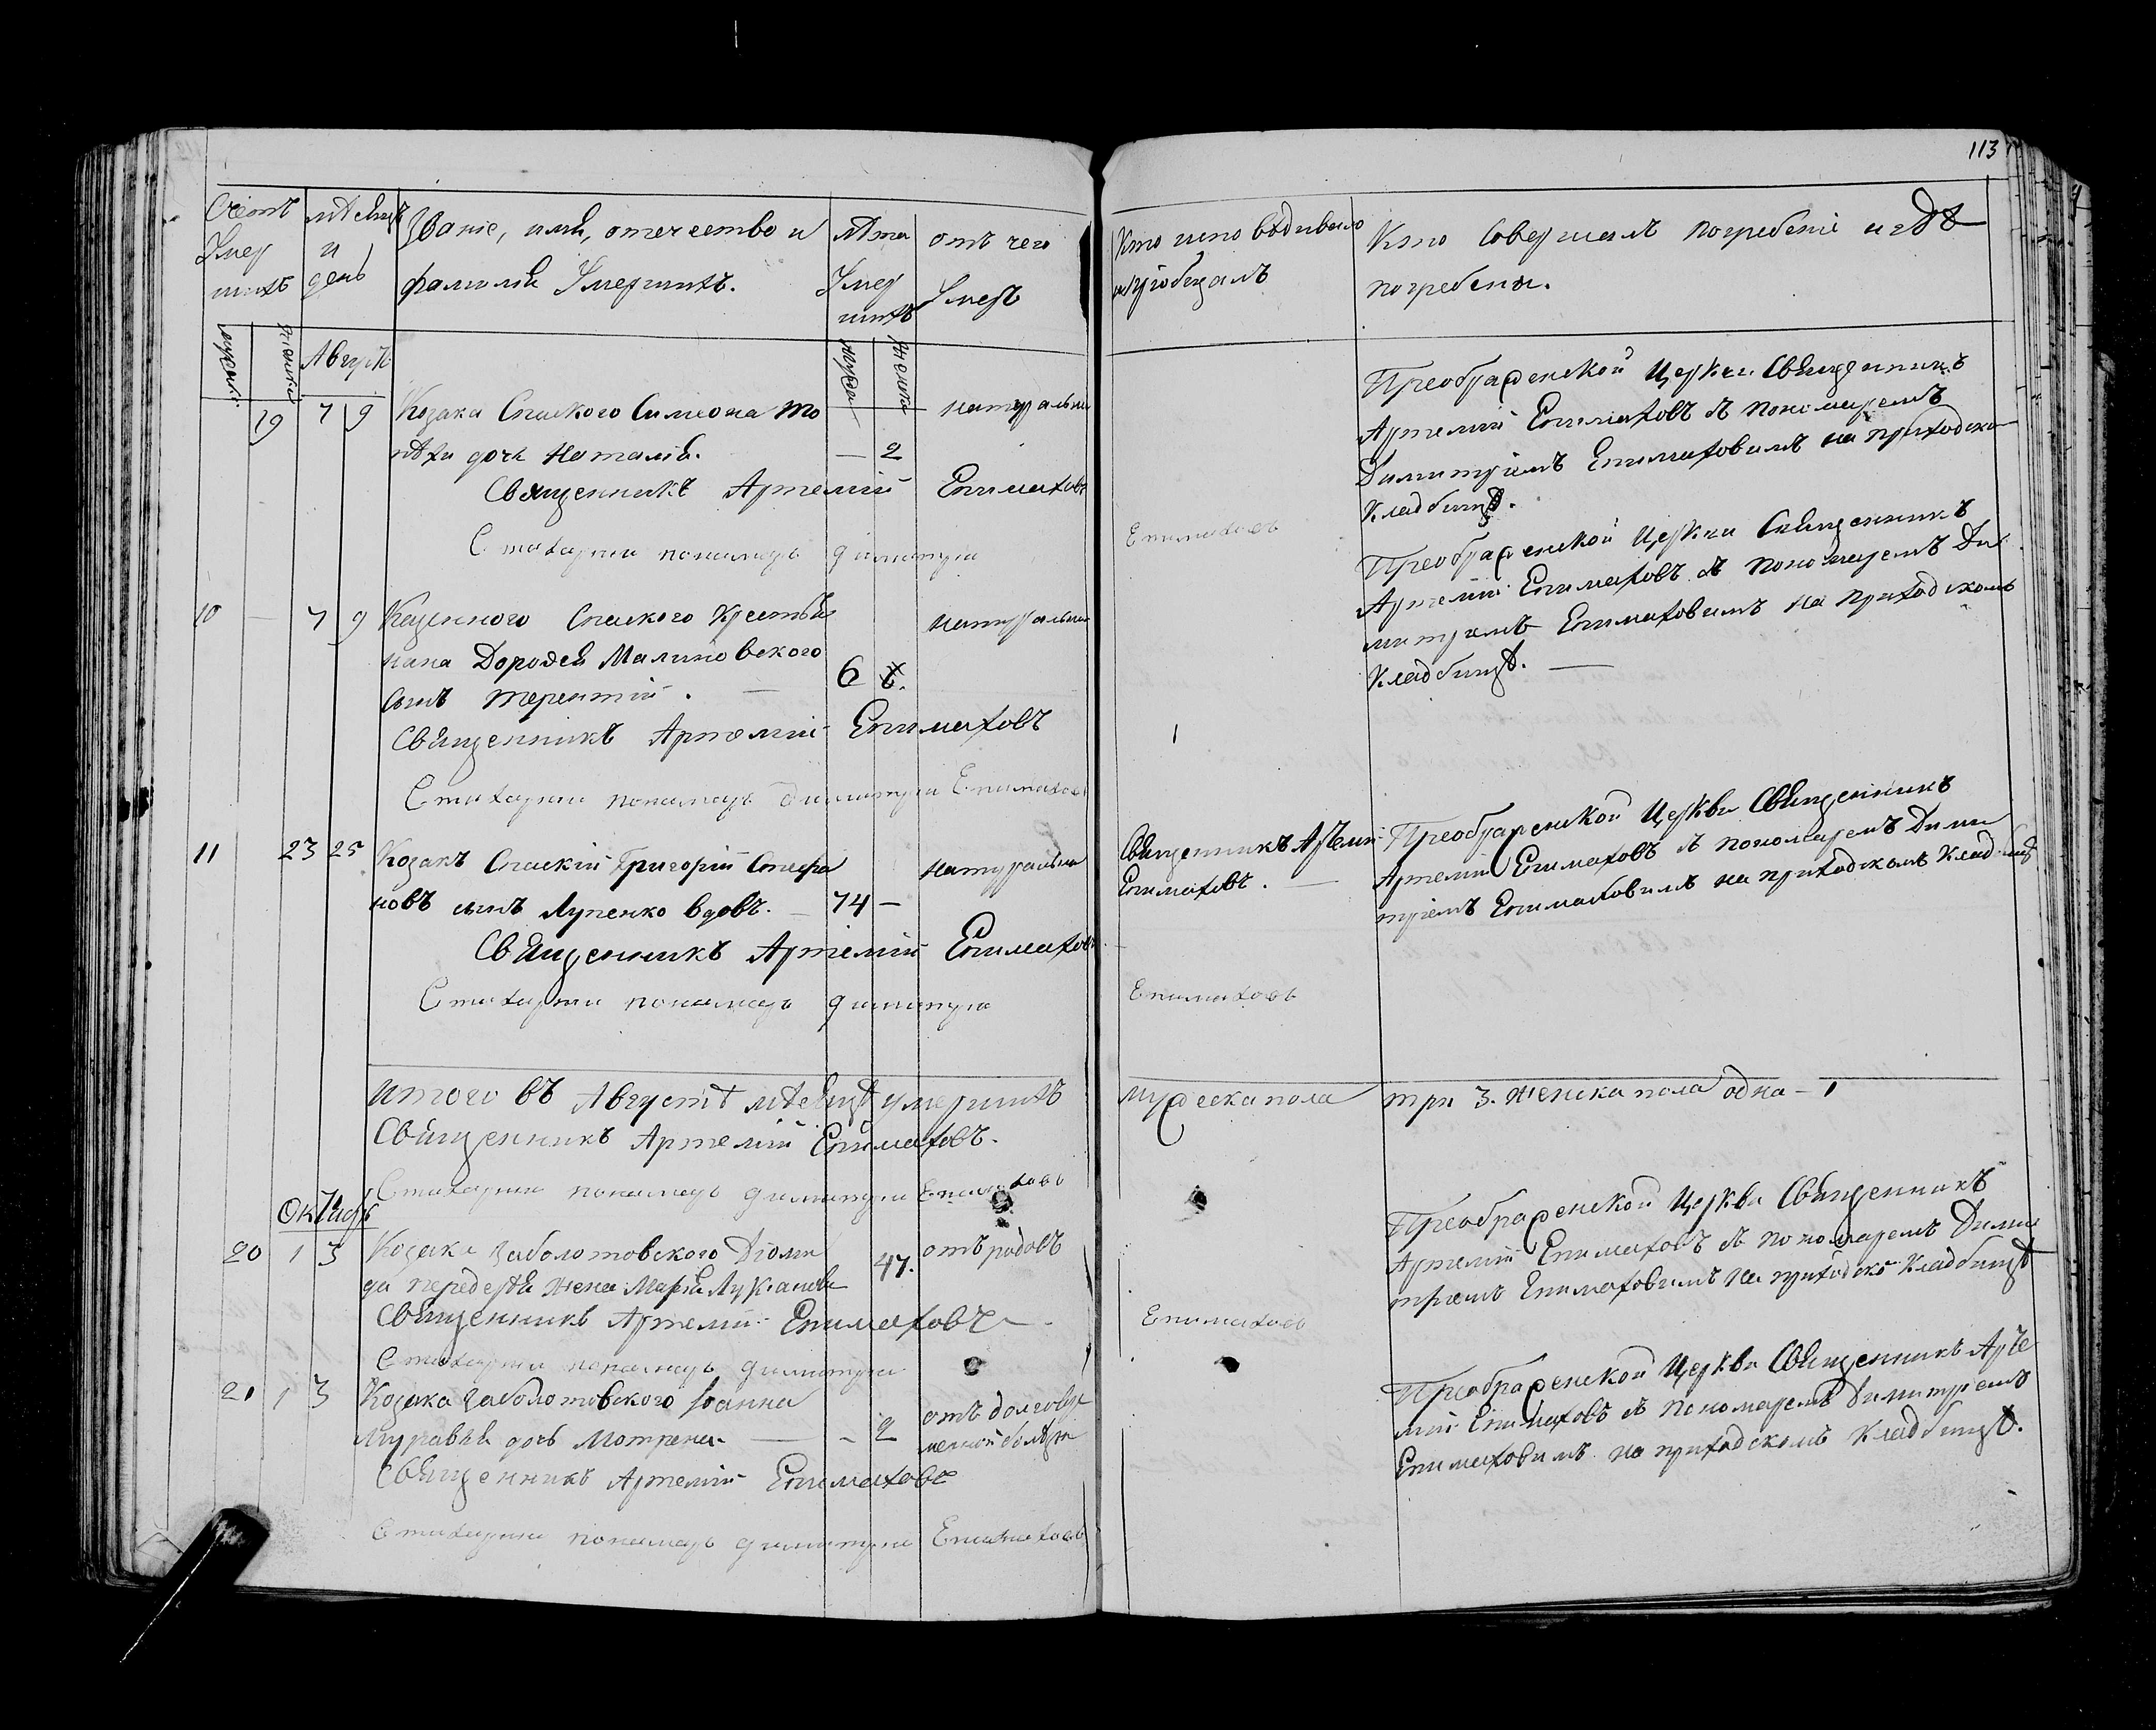 113
Счетъ Умер шихъ
мѣсяцъ и день
Званіе, имя, отечество и
фамилія Умершихъ.
лѣта Умер шихъ
отъ чего Умеръ
Кто исповѣдивалъ
и пріобщалъ
Кто Совершалъ погребеніе и гдѣ
погребены.
мужескъ женскъ
Августъ
19 7 9 Козака Спаского Симеона
дочь Наталія. — 2
натурально
Священникъ Артемій Епимаховъ
Стихарни пономарь димитри
Епимаховъ
Преображенской Церкви Священникъ
Артемій Епимаховъ съ пономаремъ
Димитріемъ Епимаховимъ на приходско
Кладбищѣ.
10 — 7 9 Казенного Спаского Крестья
нина Дорофея Малиновского
сынъ терентій. — 6
натурально
Священникъ Артемій Епимаховъ
Стихарни пономарь димитри Епимахов
Преображенской Церкви Священникъ
Артемій Епимаховъ съ Пономаремъ Ди
митріемъ Епимаховимъ на Приходскомъ
Кладбищѣ. —
11 23 25 Козакъ Спаскій Григорій Стефа
новъ сынъ Лупенко вдовъ. — 74 —
натурально
Священникъ Артемій
Епимаховъ. —
Преображенской Церкви Священникъ
Артемій Епимаховъ съ пономаремъ Дими
тріемъ Епимаховимъ на приходскомъ Кладбищѣ
Священникъ Артемій Епимаховъ
Стихарни пономарь димитри
Епимаховъ
итого въ Августѣ мѣсяцѣ умершихъ мужеска пола три 3. женска пола одна – 1
Священникъ Артемій Епимаховъ.
Стихарни пономарь димитри Епимаховъ
Октябрь
20 1 3 Козака Заболотовского Діоми
да передерѣя жена Марѳа Лукіанова 47. отъ родовъ
Преображенской Церкви Священникъ
Артемій Епимаховъ съ пономаремъ Дими
тріемъ Епимаховимъ на приходско Кладбищѣ
Священникъ Артемій Епимаховъ
Стихарни пономарь димитри
Епимаховъ
21 1 3 Козака Заболотовского Іоанна
Муравъя дочь Мотрена — – 2
отъ долговре
менной болѣзн
Преображенской Церкви Священникъ Арте
мій Епимаховъ съ Пономаремъ Димитріемъ
Епимаховимъ на приходскомъ Кладбищѣ.
Священникъ Артемій Епимаховъ
Стихарни пономарь димитри Епимаховъ